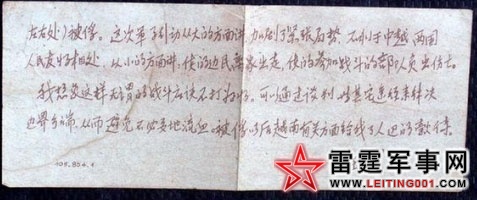 左右处)被俘。这次军事行动从大的方面讲,加剧了紧张局势,不利于中越两国
人民友好相处,从小的方面讲,使边民离家出走,使参加战斗的部队负出伤亡。
我想象这样无谓的战斗应该不打为好。可以通过谈判,以某它途径来解决
边界争端,从而避免不必要地流血。被俘以后越南有关方面给我了人道的款待。
雷霆军事网
WWW.LEITING001.COM